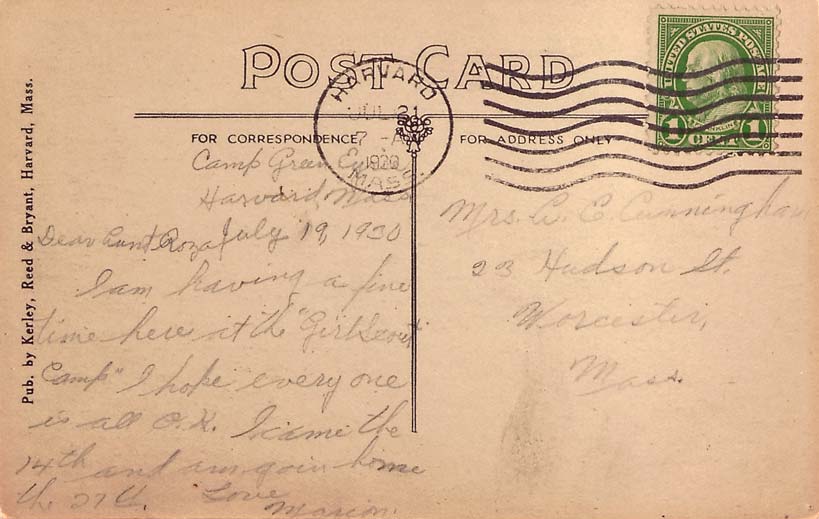 POST CARD
UNITED STATES POSTAGE
FRANKLIN
1 CENT 1
HARVARD
JUL 21
7 - A
MASS.
FOR CORRESPONDENCE
FOR ADDRESS ONLY
Pub. by Kerley, Reed & Bryant, Harvard, Mass.
Camp Green Eyrie
Harvard, Mass
July 19, 1930
Dear Aunt Roza,
I am having a fine
time here at the "Girl Scout
Camp" I hope every one
is all O.K. I came the
14th and am goin home
the 27th. Love
Marion.
Mrs. A. E. Cunningham
23 Hudson St.
Worcester,
Mass.